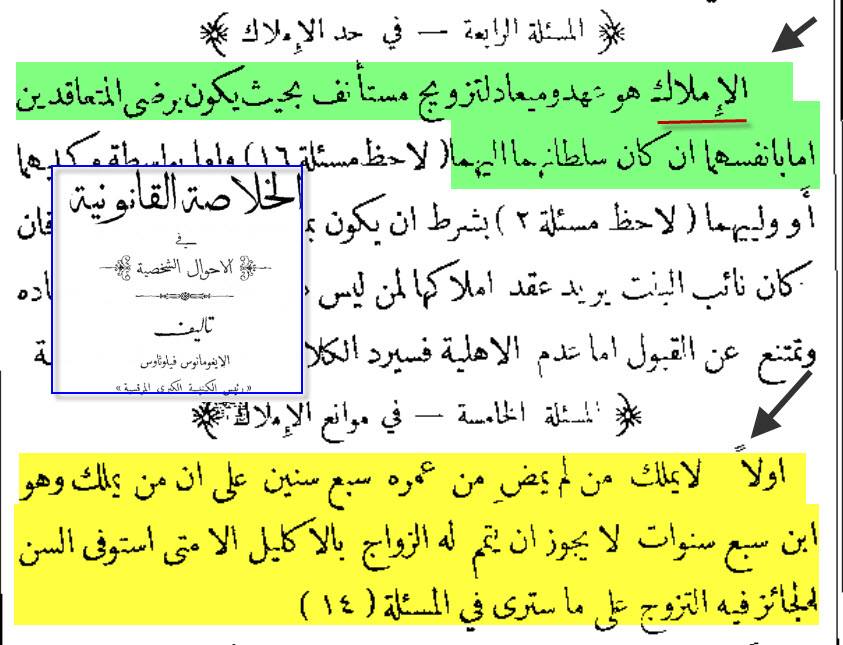 المسئلة الرابعة — في حد الإملاك
الإملاك هو عهد وميعاد لتزويج مستأنف بحيث يكون برضى المتعاقدين
اما بانفسهما ان كان سلطانهما اليهما ( لاحظ مسئلة ١٦ ) واما بواسطة وكيليهما
أو ولييهما ( لاحظ مسئلة ٢ ) بشرط ان يكون فان
كان نائب البنت يريد عقد املاكها لمن ليس
وتمتنع عن القبول اما عدم الاهلية فسيرد
الخلاصة القانونية
في
الاحوال الشخصية
تاليف
الايغومانوس فيلوثاوس
« رئيس الكنيسة الكبرى المرقسية »
المسئلة الخامسة — في موانع الإملاك
اولاً لا يملك من لم يمض من عمره سبع سنين على ان من يملك وهو
ابن سبع سنوات لا يجوز ان يتم له الزواج بالاكليل الا متى استوفى السن
الجائز فيه التزوج على ما سترى في المسئلة ( ١٤ )